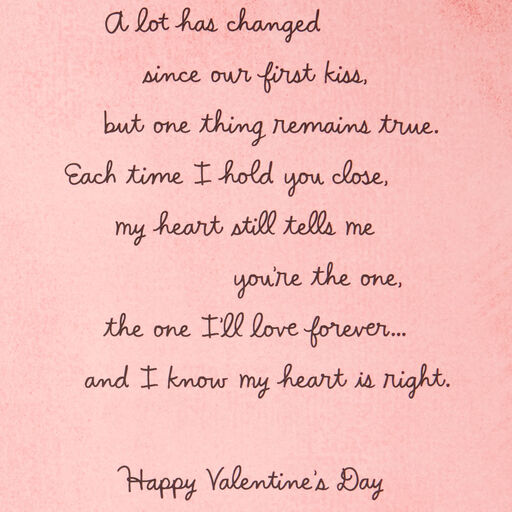 A lot has changed
since our first kiss,
but one thing remains true.
Each time I hold you close,
my heart still tells me
you're the one,
the one I'll love forever...
and I know my heart is right.
Happy Valentine's Day